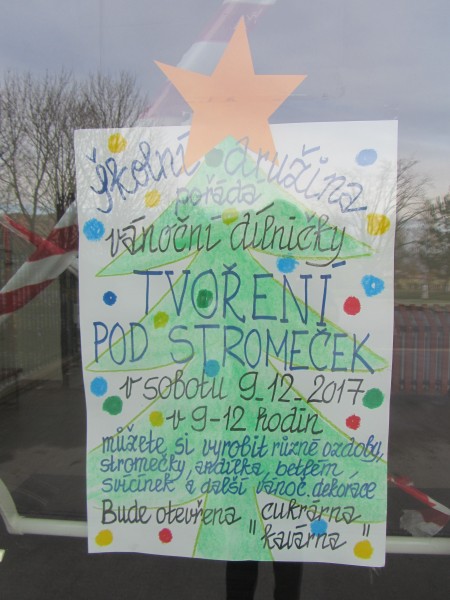 školní družina
pořádá
vánoční dílničky
TVOŘENÍ
POD STROMEČEK
v sobotu 9.12.2017
v 9-12 hodin
můžete si vyrobit různé ozdoby,
stromečky, andílka, betlém
svícínek a další vánoč. dekorace
Bude otevřena " cukrárna
kavárna "